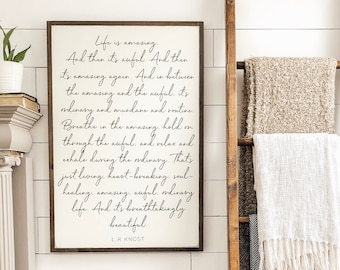 Life is amazing.
And then it's awful. And then
it's amazing again. And in between
the amazing and the awful, it's
ordinary and mundane and routine.
Breathe in the amazing, hold on
through the awful, and relax and
exhale during the ordinary. That's
just living, heart-breaking, soul-
healing, amazing, awful, ordinary
life. And it's breathtakingly
beautiful.
L. R. KNOST